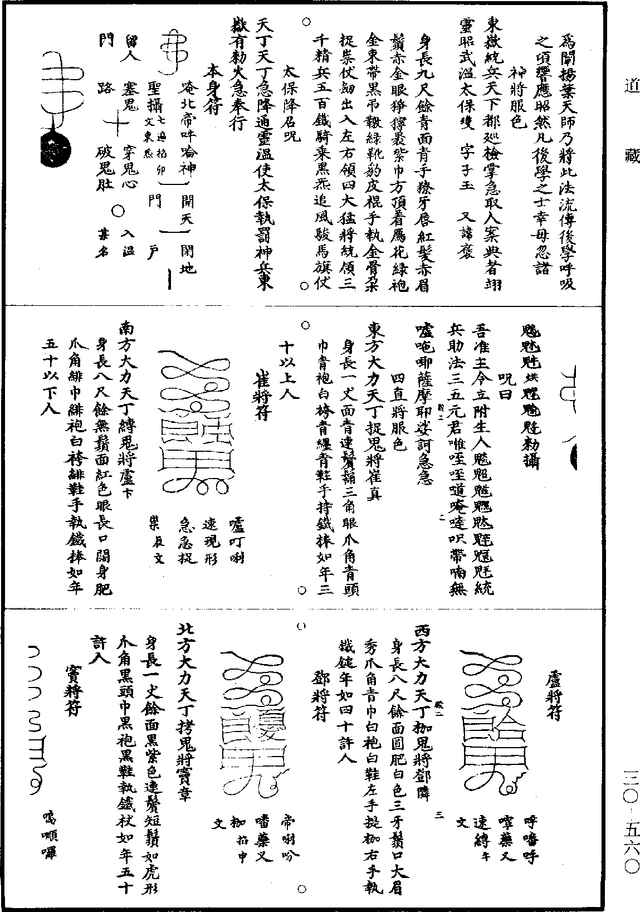 道藏
爲闡揚葉天師乃將此法流傳後學呼吸
之頃響應昭然凡後學之士幸毋忽諸
神將服色
東嶽統兵天下都巡檢掌急取人案典者翊
靈昭武溫太保瓊 字子玉 又諱褒
身長九尺餘青面青手獠牙唇紅髮赤眉
鬚赤金眼猙獰裹紫巾方頂着鴈花綠袍
金東帶黑吊𩋾綠靴豹皮裩手執金骨朶
捉祟仗劒出入左右領四大猛將統領三
千精兵五百鐵騎乘黑炁追風駿馬旗仗
太保降召呪
天丁天丁急降通靈溫使太保執罰神兵東
嶽有勑火急奉行
本身符
唵北帝吽唵神 開天 閉地
聖攝 七遍掐卯文東炁 門 戶
留人 塞鬼 穿鬼心 入溫
門 路 破鬼肚 某名
勑攝
呪曰
吾准主令立附生人
兵助法三五元君唯哐哐道唵噠呎帶喃無
嚧唵哪薩摩耶娑訶急急
四直將服色
東方大力天丁捉鬼將崔真
身長一丈面青連鬢鬍三角眼爪角青頭
巾青袍白袴青纏青鞋手持鐵棒如年三
十以上人
崔將符
嚧叮唎
速現形
急急捉
樂辰文
南方大力天丁縛鬼將盧卞
身長八尺餘無鬚面紅色眼長口闊身肥
爪角緋巾緋袍白袴緋鞋手執鐵捧如年
五十以下人
盧將符
呼嚕呼
嚀藥叉
速縛午
文
西方大力天丁枷鬼將鄧隣
身長八尺餘面圓肥白色三牙鬚口大眉
秀爪角青巾白袍白鞋左手捉枷右手執
鐵鏈年如四十許人
鄧將符
帝唎吩
嚕藥叉
枷掐申
文
北方大力天丁拷鬼將竇章
身長一丈餘面黑紫色連鬢短鬚如虎形
爪角黑頭巾黑袍黑鞋執鐵杖如年五十
許人
竇將符
嗚囉
三〇-五六〇